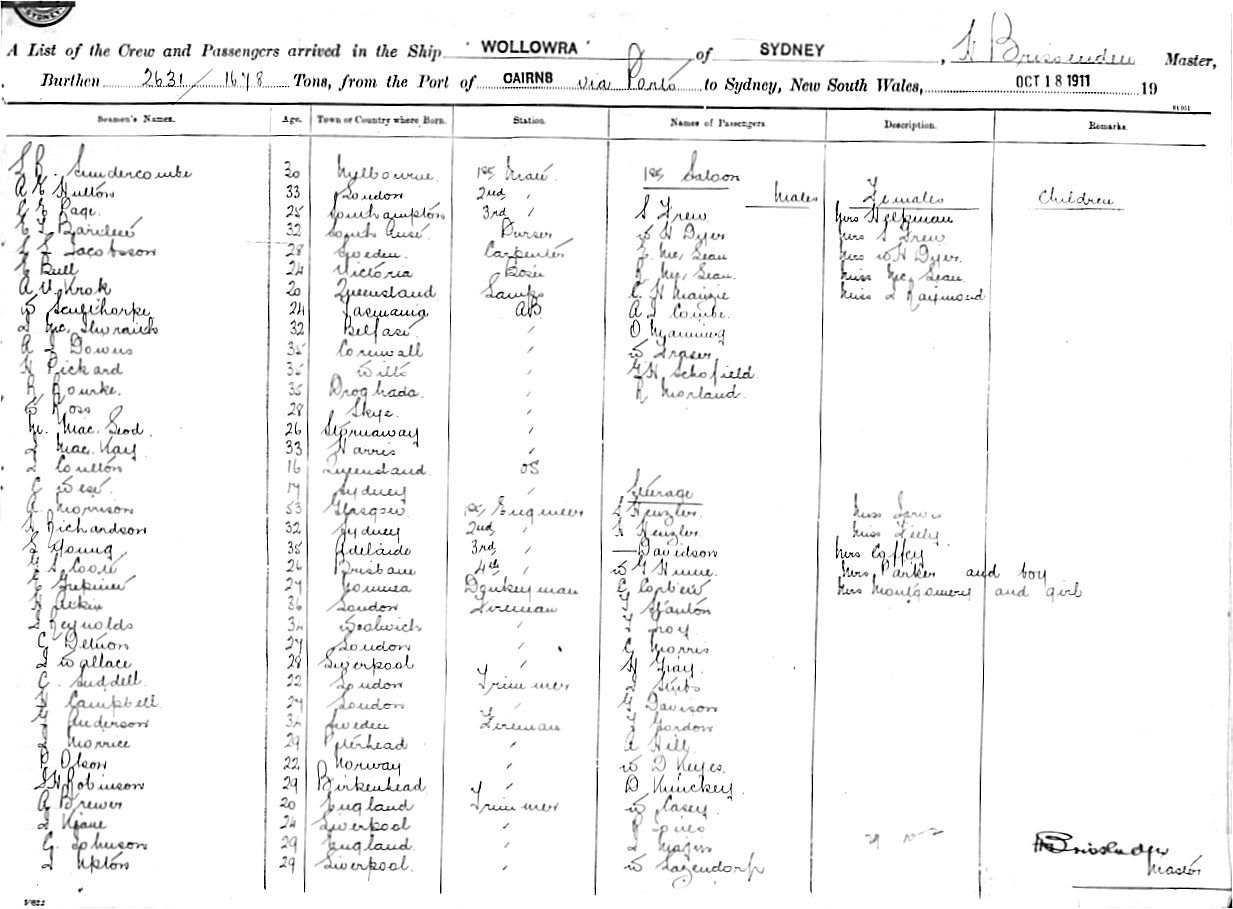 SYDNEY
A List of the Crew and Passengers arrived in the Ship "WOLLOWRA" of SYDNEY, H Brissenden Master,
Burthen 2631/1678 Tons, from the Port of CAIRNS via Ports to Sydney, New South Wales, OCT 18 1911 19
Seamen's Names. Age. Town or Country where Born. Station. Names of Passengers. Description. Remarks.
30 Melbourne 1st Mate 1st Saloon
A E Hulton 33 London 2nd " Males Females Children
Page 25 Southampton 3rd " S Frew Mrs Helpman
32 South Aust Purser W H Dyer Mrs S Frew
Jacobsson 28 Sweden Carpenter Mc Lean Mrs W H Dyer
Bull 24 Victoria Bosn R Mc Lean Miss Mc Lean
A V Krok 20 Queensland Lamps C H Manzie Miss L Raymond
W 24 Tasmania AB A L Combe
32 Belfast " O Manning
A J Downs 35 Cornwall " W Fraser
H Pickard 35 Wilts " G H Schofield
R Rourke 35 Drogheda " R Morland
W Ross 28 Skye "
M. Mac Leod 26 Stornaway "
Mac Kay 33 Harris "
Coulton 16 Queensland OS
C West 17 Sydney " Steerage
A Morrison 53 Glasgow 1st Engineer S Henzler Miss Jarvis
H Richardson 32 Sydney 2nd " H Henzler Miss
Young 38 Adelaide 3rd " — Davidson Mrs Coffey
26 Brisbane 4th " W G Hume Mrs Parker and boy
27 Donkeyman C Corbett Mrs Montgomery and girl
H Aitkin 36 London Fireman Stanton
Reynolds 34 Woolwich " Troy
C 27 London " C Morris
Wallace 28 Liverpool " H Gray
C Suddell 22 London Trimmer Stubs
Campbell 27 London " G Davison
Anderson 34 Sweden Fireman Gordon
Morrice 29 Peterhead " A Hill
P Olson 22 Norway " W D Keyes
S H Robinson 29 Birkenhead " D Hinckey
A Brewer 20 England Trimmer W Casey
Kane 24 Liverpool "
G. Johnson 29 England " Magin H Brissenden
Upton 29 Liverpool " W Sagendorp Master